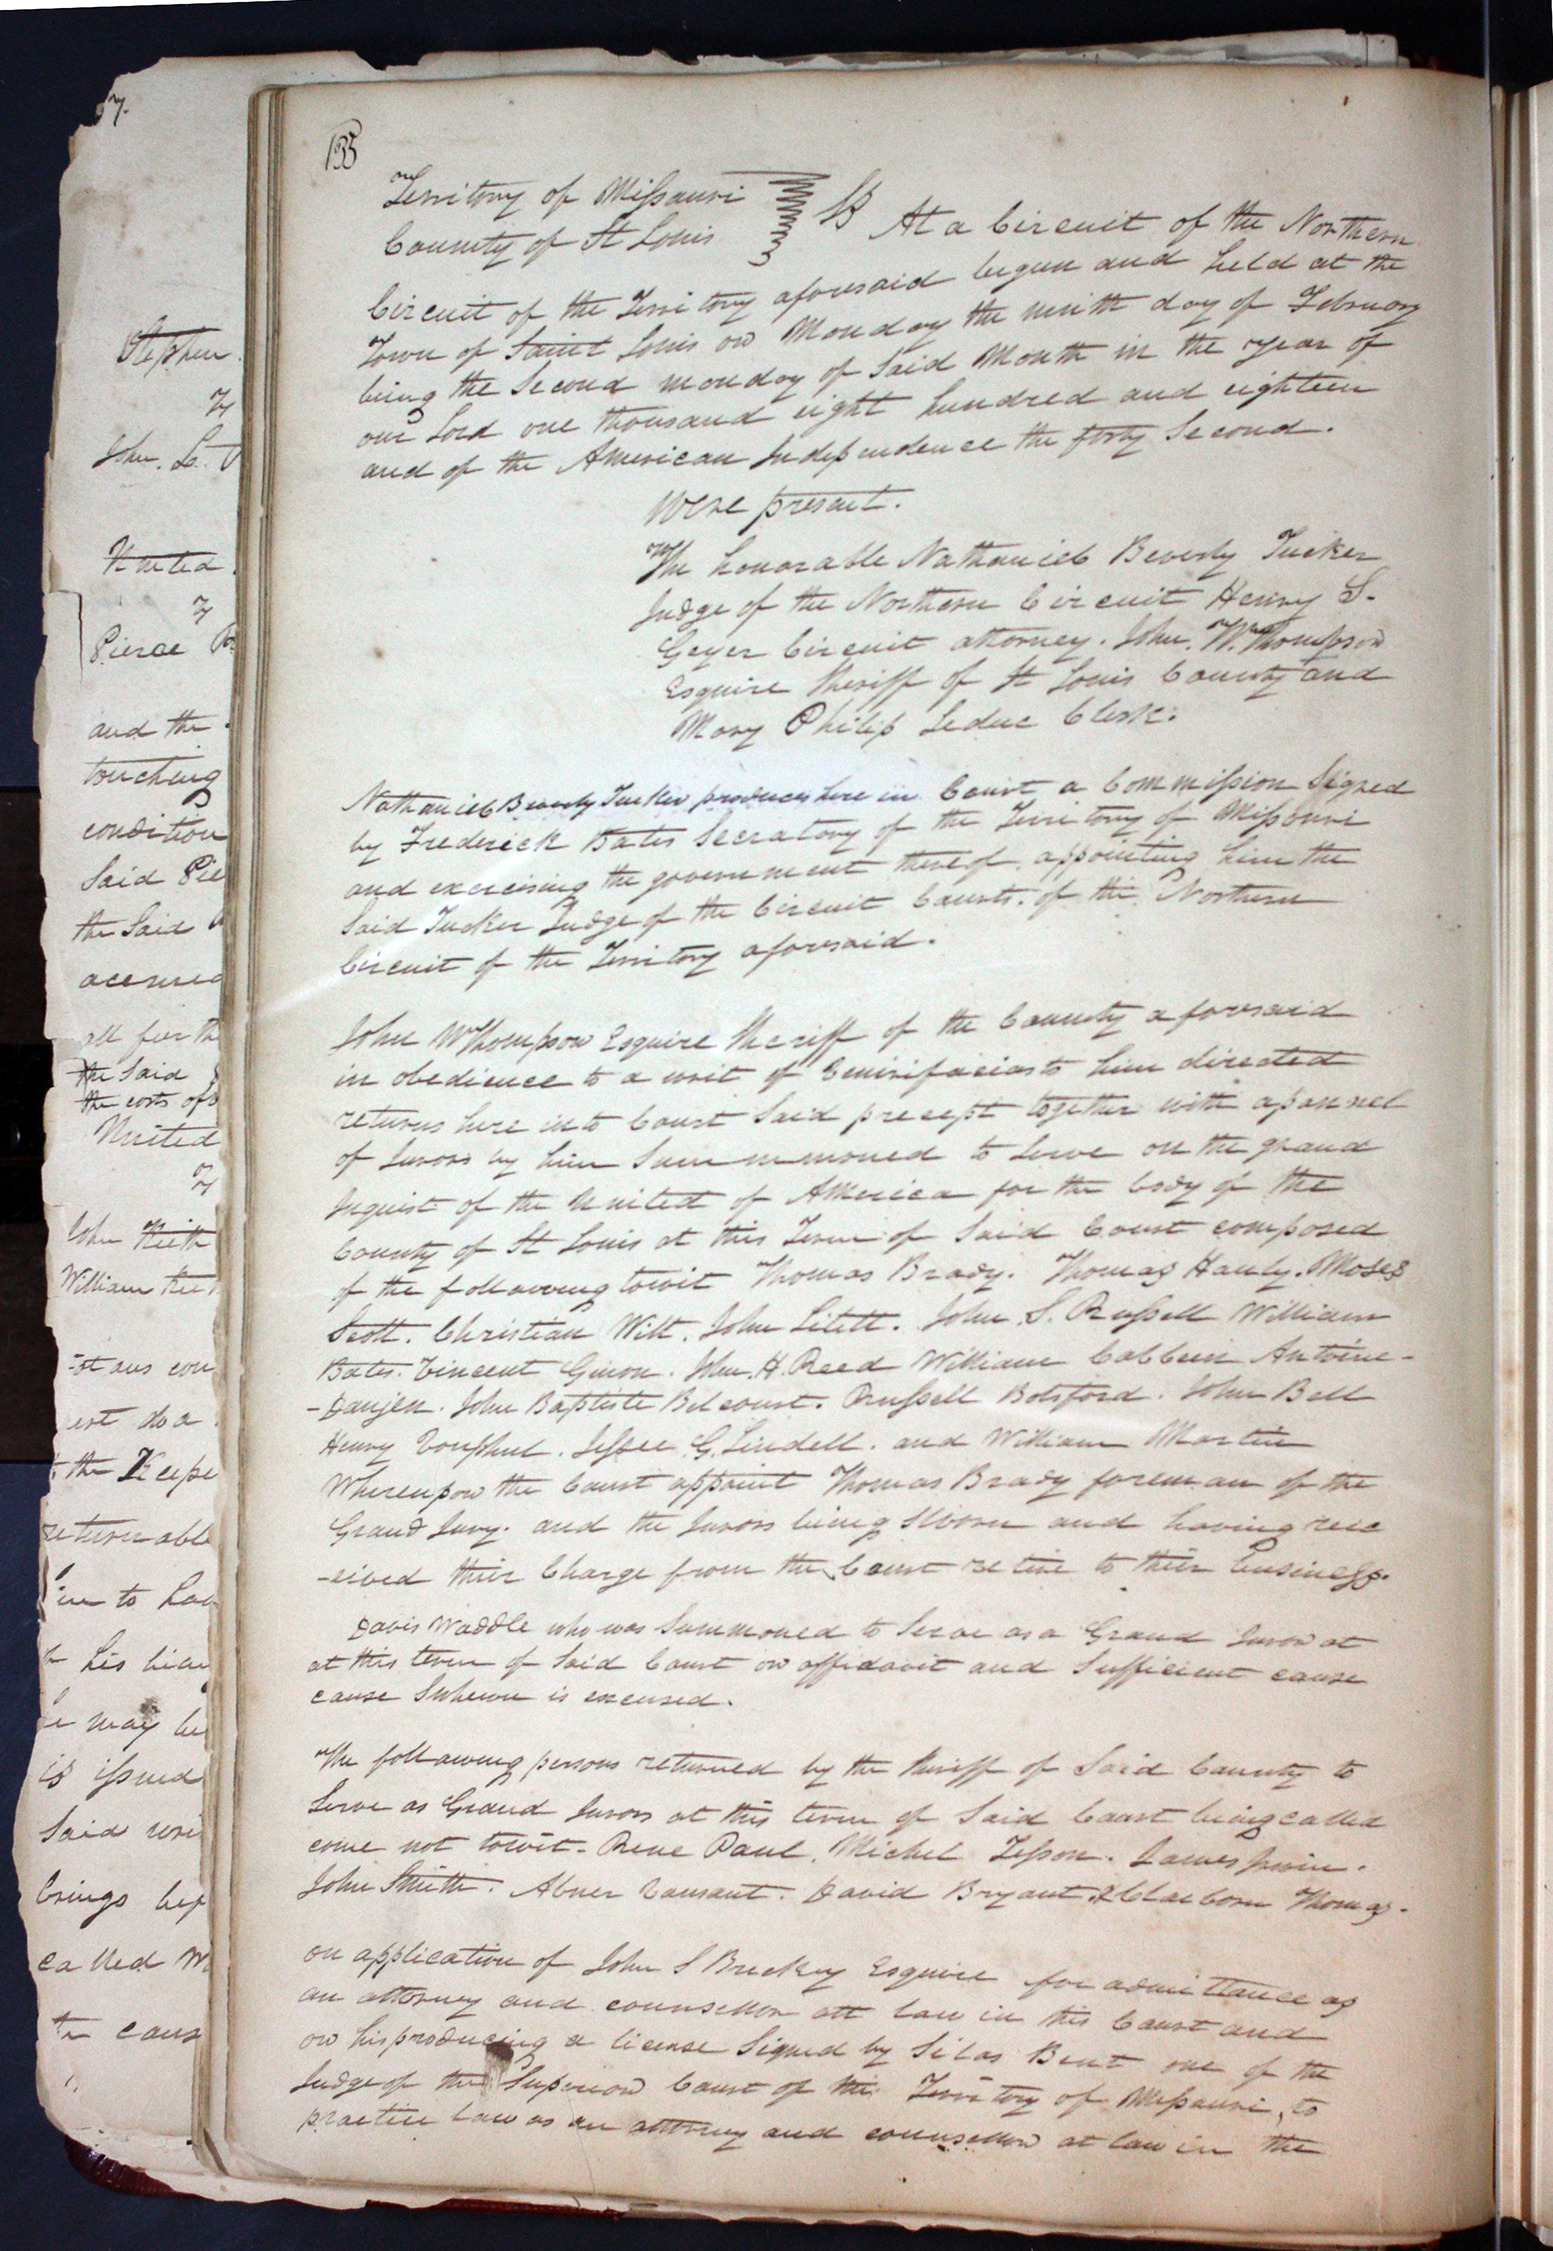 135
Territory of Missouri
County of St Louis
SS At a Circuit of the Northern
Circuit of the Territory aforesaid begun and held at the
Town of Saint Louis on Monday the ninth day of February
being the Second monday of Said Month in the year of
our Lord one thousand eight hundred and eighteen
and of the American Independence the forty Second.
were present.
The honorable Nathaniel Beverly Tucker
Judge of the Northern Circuit Henry S.
Geyer Circuit attorney. John. W. Thompson
Esquire Sheriff of St Louis County and
Mary Philip Leduc Clerk.
Nathaniel Beverly Tucker produces here in Court a Commission Signed
by Frederick Bates Secratary of the Territory of Missouri
and exercising the government thereof. appointing him the
Said Tucker Judge of the Circuit Courts. of the Northern
Circuit of the Territory aforesaid.
John W Thompson Esquire Sheriff of the County aforesaid
in obedience to a writ of to him directed
returns here into Court Said precept together with a pannel
of Jurors by him Summmoned to Serve on the grand
Inquest of the United of America for the body of the
County of St Louis at this Term of Said Court composed
of the following towit Thomas Brady. Thomas Hanly. Moses
Scott. Christian Wilt. John Litett. John. S. Russell William
Bates. Vincent Guion. John. H. Reed William Antoine-
-Danjen. John Baptiste Belcourt. Russell Botsford. John Bell
Henry Jessee G. Lindell. and William Martin
Whereupon the Court appoint Thomas Brady foreman of the
Grand Jury. and the Jurors being Sworn and having rece
-eived their Charge from the Court retire to their business.
Davis Waddle who was Summoned to Serve as a Grand Juror at
at this term of Said Court on affidavit and Sufficient cause
cause Shewn is excused.
The following persons returned by the Sheriff of Said County to
Serve as Grand Jurors at this term of Said Court being called
come not towit- Rene Paul. Michel Tesson. James Irwin.
John Smith. Abner Vansant. David Bryant. & Claiborn Thomas.
on application of John S Brickey Esquire for admittance as
an attorney and counsellor att law in this Court and
on his producing a license Signed by Silas Bent one of the
Judge of the Superior Court of the Territory of Missouri, to
practice law as an attorney and counsellor at law in the
7.
Stephen
John. L.
United
Pierce
and the
touching
condition
Said Pie
the Said
accrued
all further
the Said
the costs of
United
John Keith
William Kei
est do a
to the Keepe
returnable
may be
is issued
Said wri
brings
called